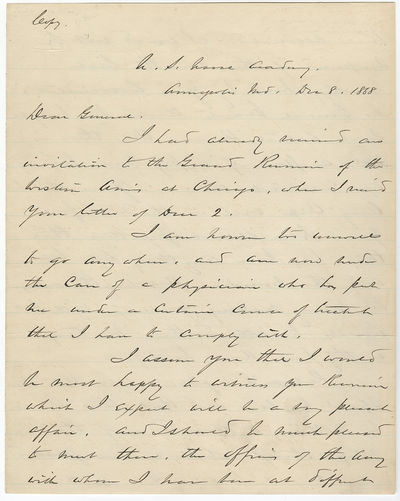 Copy.
U. S. Naval Academy.
Annapolis Md. Dec 8. 1868
Dear General.
I had already received an
invitation to the Grand Reunion of the
Western Armies at Chicago, when I received
your letter of Dec 2.
I am however too unwell
to go any where, and am now under
the care of a physician who has put
me under a certain course of treatment
that I have to comply with.
I assure you that I would
be most happy to witness your Reunion
which I expect will be a very pleasant
affair. And I should be much pleased
to meet there, the officers of the Army
with whom I have been at different